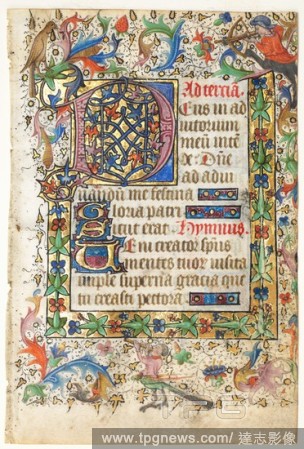 Ad terciā.
Eus in ad
iutorium
meū intē
de. Dūe
ad adiu
uandū me festina
Gloria patri
Sicut erat. Hymnus.
Veni creator spūs
mentes tuor visita
imple superna gracia que
tu creasti pectora
TPG
www.tpgnews.com/ 達志影像